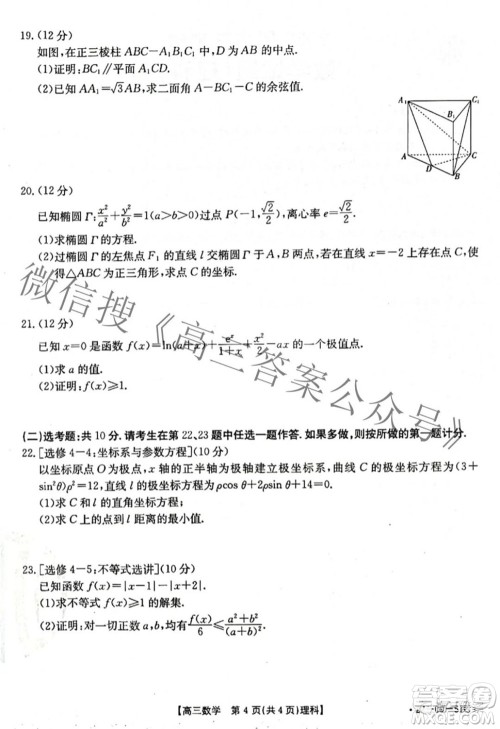 19.(12分)
如图,在正三棱柱 ABC−A₁B₁C₁ 中,D 为 AB 的中点.
(1)证明:BC₁∥平面 A₁DC.
(2)已知 AA₁=√3AB,求二面角 A₁−BC−A 的余弦值.
A₁
C₁
B₁
A
C
D
B
20.(12分)
已知椭圆 Γ:x²/a²+y²/b²=1(a>b>0)过点 P(1,√2/2),离心率 e=√2/2.
(1)求椭圆 Γ 的方程.
(2)过椭圆 Γ 的左焦点 F₁ 的直线 l 交椭圆 Γ 于 A,B 两点,若在直线 x=−2 上存在点 C,
使得△ABC 为正三角形,求直线 l 的方程.
21.(12分)
已知 x=0 是函数 f(x)=ln(a+x)+ /1+x+x²/2−x 的一个极值点.
(1)求 a 的值.
(2)证明:f(x)≥1.
(二)选考题:共10分.请考生在第22、23题中任选一题作答.如果多做,则按所做的第一题计分.
22.[选修4−4:坐标系与参数方程](10分)
以坐标原点 O 为极点,x 轴的正半轴为极轴建立极坐标系,曲线 C 的极坐标方程为(3+
sin²θ)ρ²=12,直线 l 的极坐标方程为 ρcos θ+ρsin θ+14=0.
(1)求 C 和 l 的直角坐标方程;
(2)求 C 上的点到 l 距离的最小值.
23.[选修4−5:不等式选讲](10分)
已知函数 f(x)=|x−1|−|x−2|.
(1)求不等式 f(x)≥1 的解集.
(2)证明:对一切正数 a,b,均有 f(x)/6≤(a²+b²)/(a+b)².
【高三数学 第4页(共4页)理科】
微信搜《高三答案公众号》